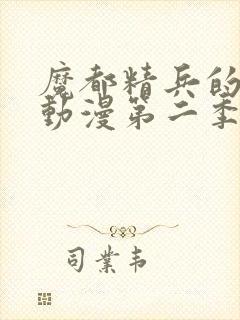 魔都精兵的
動漫第二季
司業韦